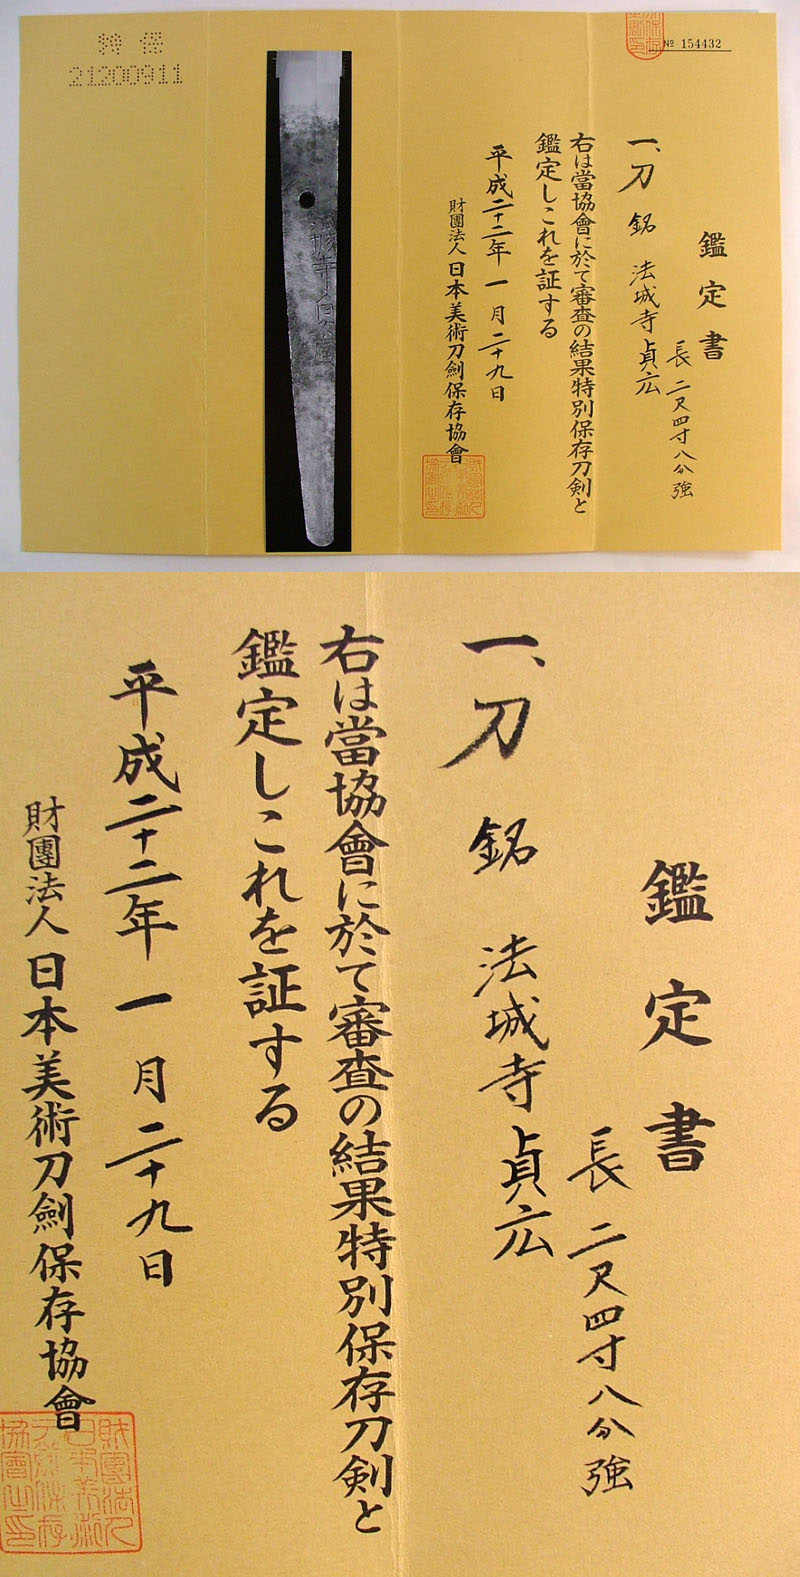 特 保
21200911
№ 154432
鑑定書
長 二尺四寸八分強
一、刀 銘 法城寺貞広
右は當協會に於て審査の結果特別保存刀剣と
鑑定しこれを証する
平成二十二年 一月 二十九日
財團法人 日本美術刀劍保存協會
法城寺貞
鑑定書
長 二尺四寸八分強
一、刀 銘 法城寺貞広
右は當協會に於て審査の結果特別保存刀剣と
鑑定しこれを証する
平成二十二年 一月 二十九日
財團法人 日本美術刀劍保存協會
財團法人
日本美術
刀劍保存
協會之印